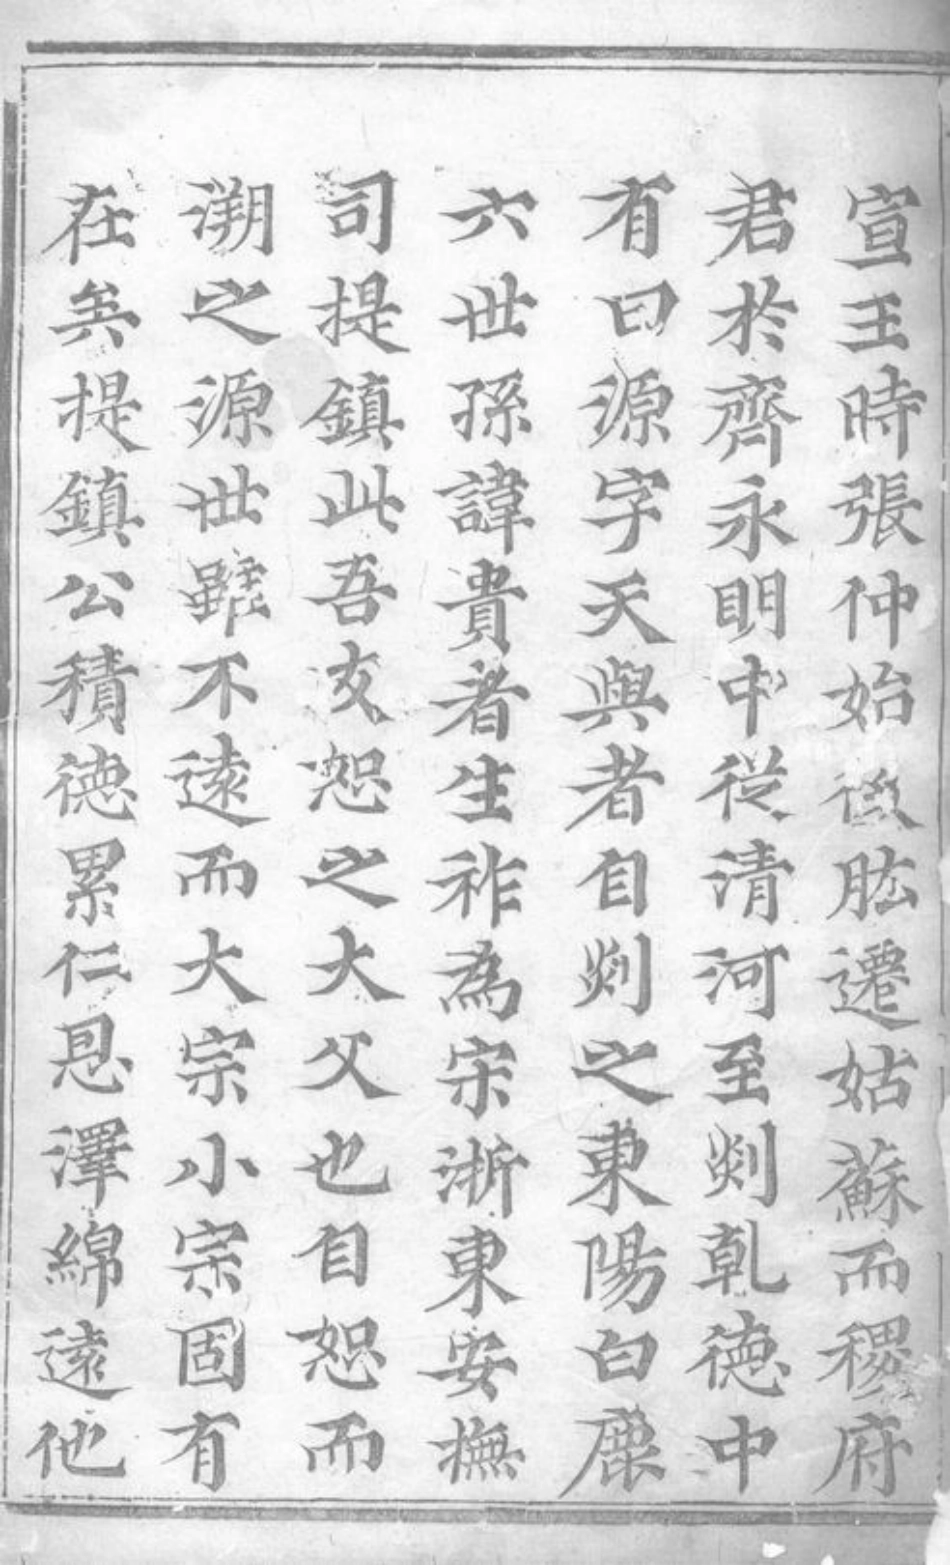 宣王時張仲始徙肱遷姑蘇而稷府
君於齊永明中從清河至剡乾德中
有曰源字天與者自剡之東陽白鹿
六世孫諱貴者生祚為宋浙東安撫
司提鎮此吾友恕之大父也自恕而
溯之源世雖不遠而大宗小宗固有
在矣提鎮公積德累仁恩澤綿遠他